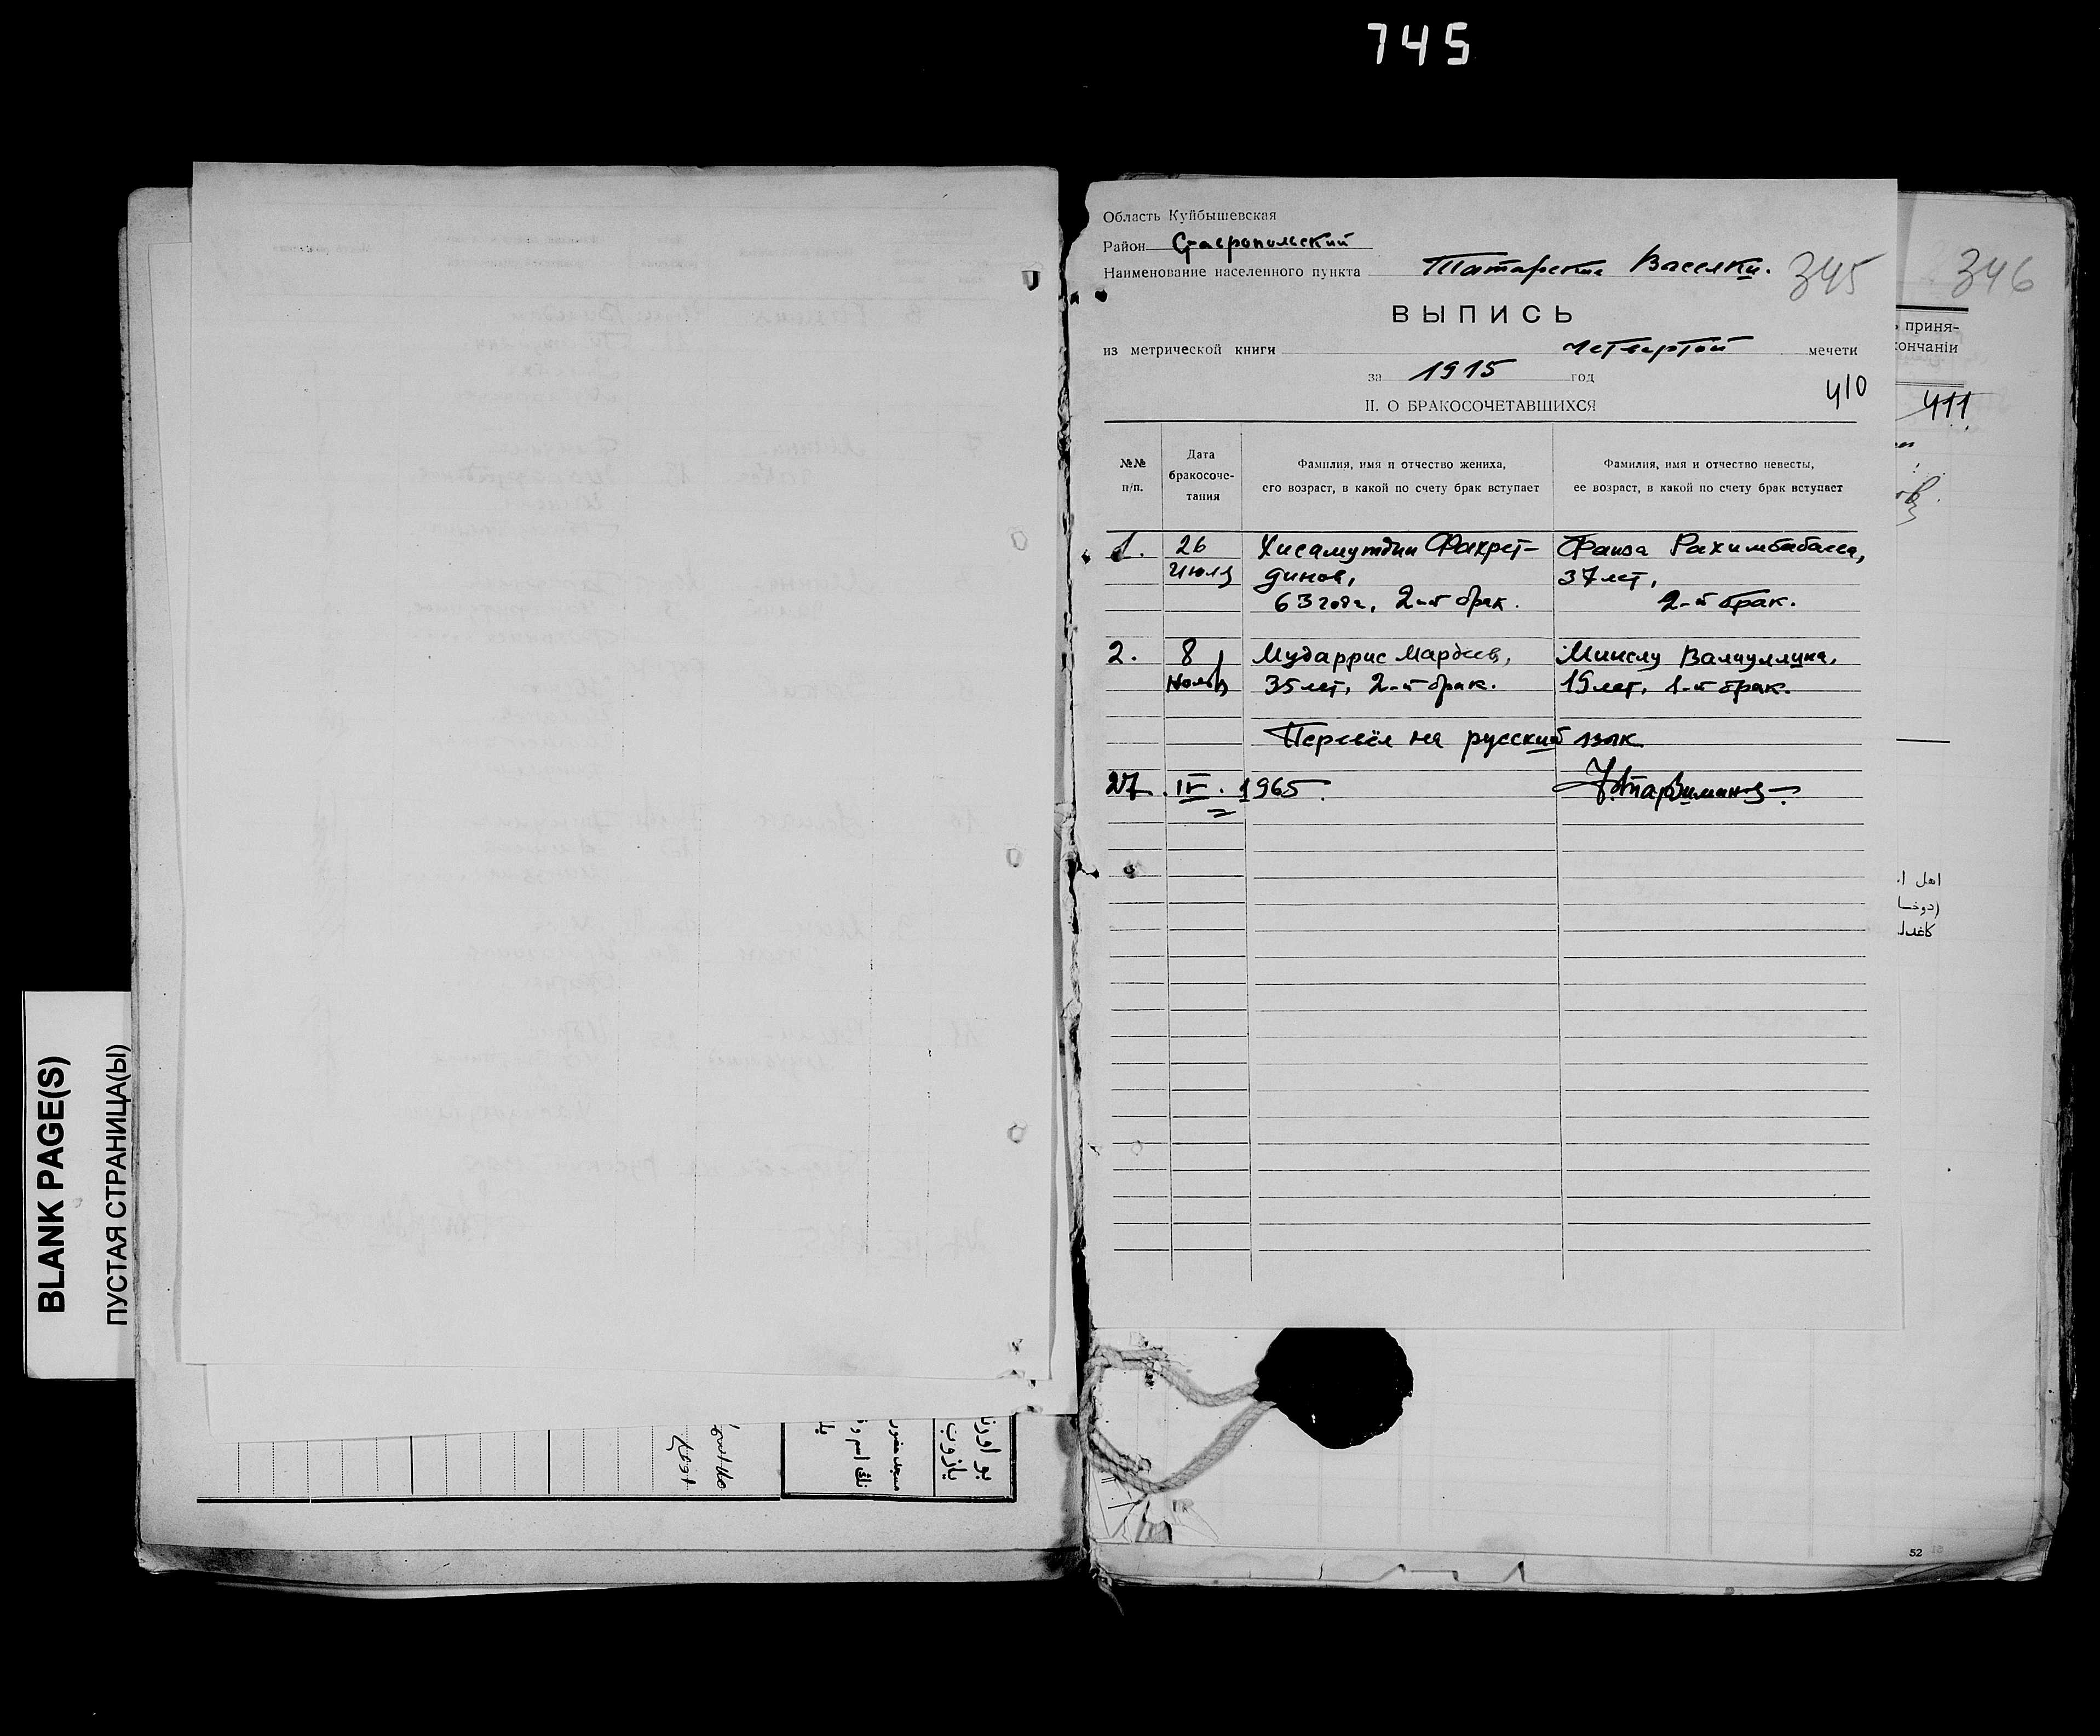 745
BLANK PAGE(S)
ПУСТАЯ СТРАНИЦА(Ы)
Область Куйбышевская
Район Ставропольский
Наименование населенного пункта Татарские Васелки.
345
346
ВЫПИСЬ
из метрической книги четвертой мечети
за 1915 год
410
II. О БРАКОСОЧЕТАВШИХСЯ
№№ п/п.
Дата бракосоче-тания
Фамилия, имя и отчество жениха,
его возраст, в какой по счету брак вступает
Фамилия, имя и отчество невесты,
ее возраст, в какой по счету брак вступает
1. 26 Хисамутдин Фахрет- Фаиза Рахимбабаева,
июля динов, 37 лет,
63 года, 2-й брак. 2-й брак.
2. 8 Мударрис Мардеев, Минслу Валиуллина,
35 лет, 2-й брак. 19 лет, 1-й брак.
Перевёл на русский язык
27. IV. 1965.
приня-
кончанiи
411
اهل
كاغد
بو اورن
يازوب
52